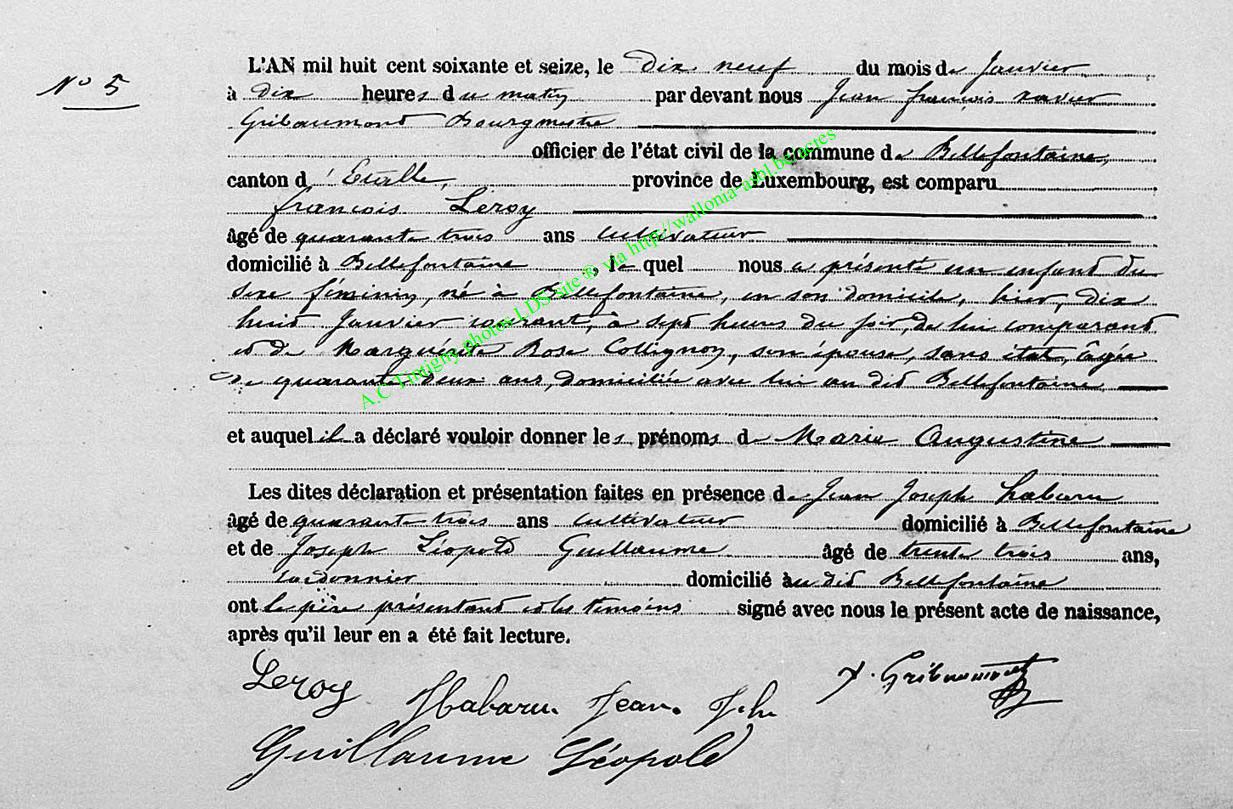 N° 5
L'AN mil huit cent soixante et seize, le dix neuf du mois de Janvier
à dix heures du matin par devant nous Jean françois xavier
Gribaumont Bourgmestre
officier de l'état civil de la commune de Bellefontaine,
canton d'Etalle, province de Luxembourg, est comparu
françois Leroy
âgé de quarante trois ans cultivateur
domicilié à Bellefontaine, le quel nous a présenté un enfant du
sexe féminin, né à Bellefontaine, en son domicile, hier, dix
huit Janvier courant, à sept heures du soir, de lui comparant
et de Marguérite Rose Collignon, son épouse, sans état, âgée
de quarante deux ans, domiciliée avec lui au dit Bellefontaine
et auquel il a déclaré vouloir donner les prénoms de Marie Augustine
Les dites déclaration et présentation faites en présence de Jean Joseph habaru
âgé de quarante trois ans cultivateur domicilié à Bellefontaine
et de Joseph Léopold Guillaume âgé de trente trois ans,
cordonnier domicilié au dit Bellefontaine
ont le père présentant et les témoins signé avec nous le présent acte de naissance,
après qu'il leur en a été fait lecture.
Leroy Habaru Jean Jph X. Gribaumont
Guillaume Léopold
A.C Tintigny photos LDS site ® via http://wallonia-mbl.be/actes